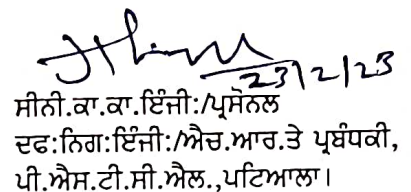 23/2/23
ਸੀਨੀ.ਕਾ.ਕਾ.ਇੰਜੀ:/ਪ੍ਰਸੋਨਲ
ਦਫ:ਨਿਗ:ਇੰਜੀ:/ਐਚ.ਆਰ.ਤੇ ਪ੍ਰਬੰਧਕੀ,
ਪੀ.ਐਸ.ਟੀ.ਸੀ.ਐਲ.,ਪਟਿਆਲਾ।